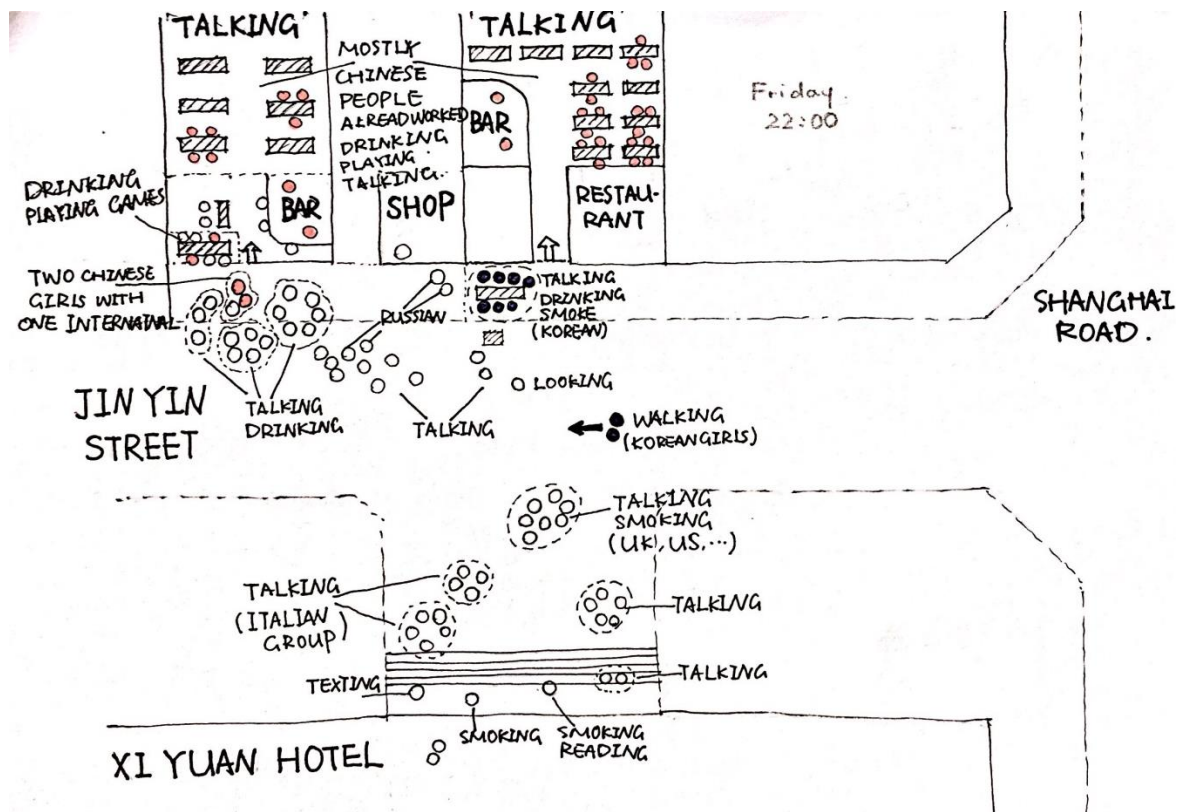 TALKING
TALKING
MOSTLY
CHINESE
PEOPLE
ALREADWORKED
DRINKING
PLAYING
TALKING..
Friday.
22:00
BAR
DRINKING
PLAYING GAMES
BAR
SHOP
RESTAU-
RANT
TWO CHINESE
GIRLS WITH
ONE INTERNAINAL
RUSSIAN
TALKING
DRINKING
SMOKE
(KOREAN)
SHANGHAI
ROAD.
LOOKING
JIN YIN
STREET
TALKING
DRINKING
TALKING
WALKING
(KOREAN GIRLS)
TALKING
SMOKING
(UK, US, ...)
TALKING
(ITALIAN
GROUP)
TALKING
TEXTING
TALKING
SMOKING
SMOKING
READING
XI YUAN HOTEL